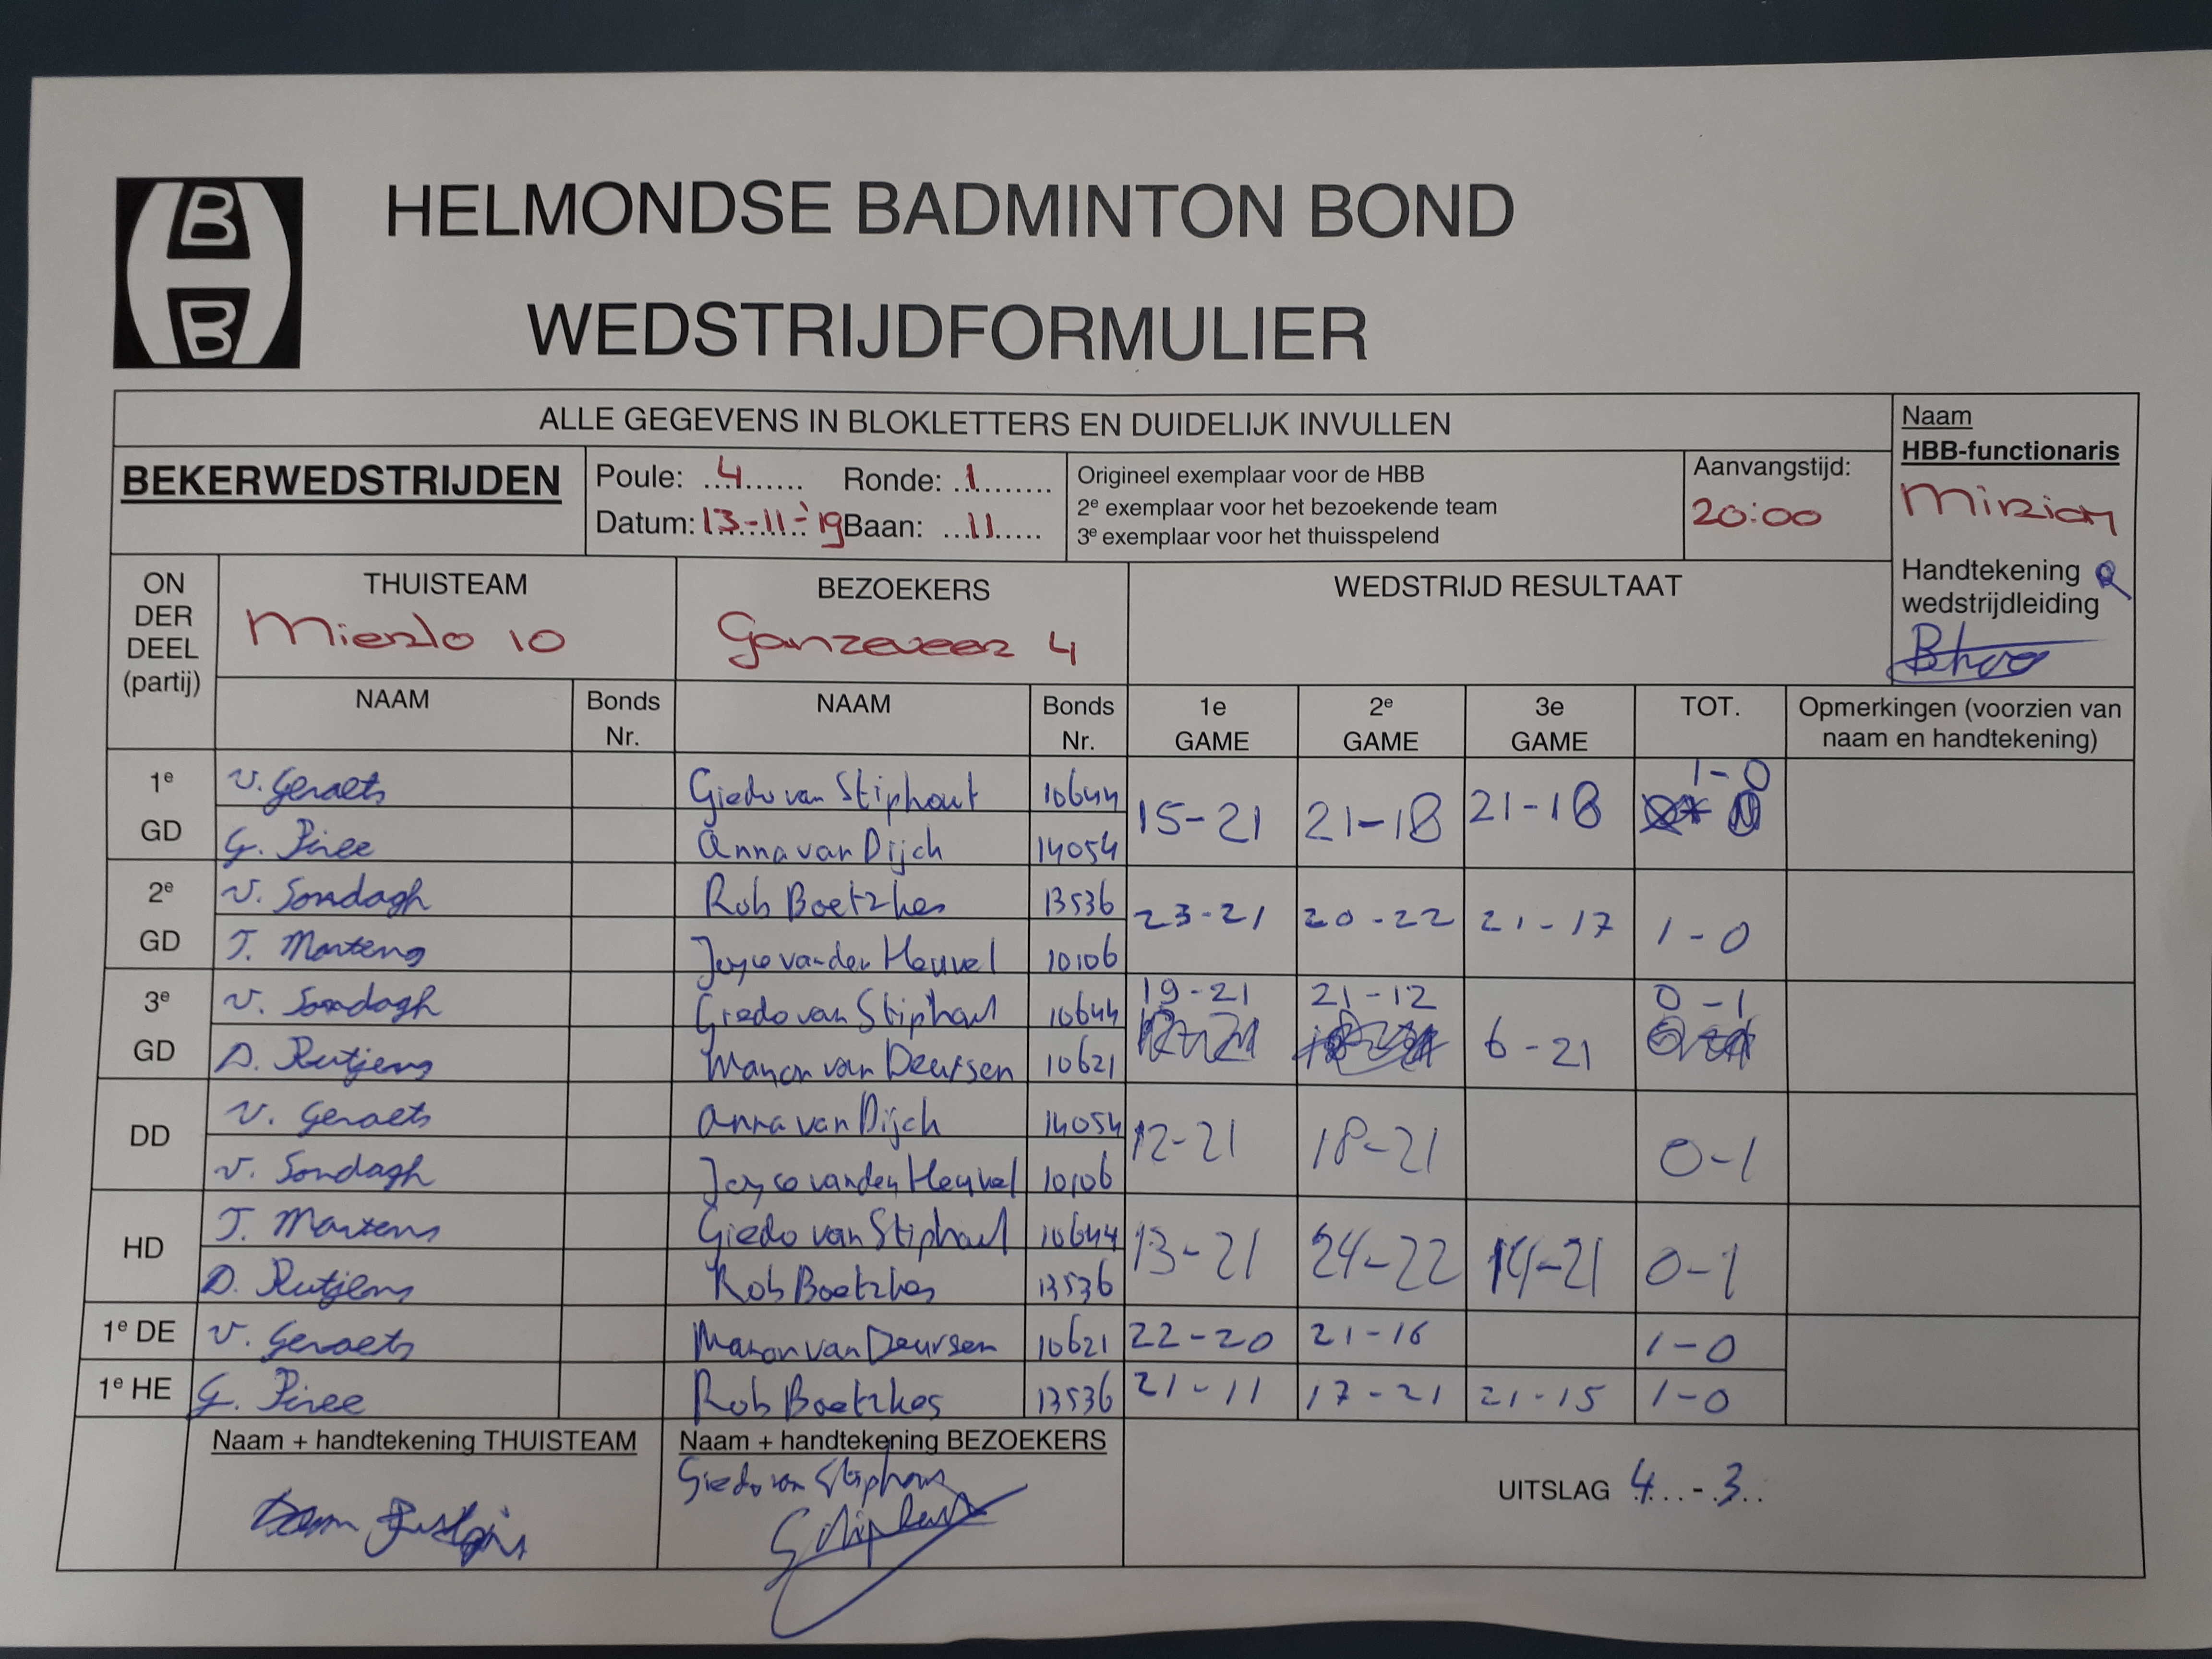 B
B
HELMONDSE BADMINTON BOND
WEDSTRIJDFORMULIER
ALLE GEGEVENS IN BLOKLETTERS EN DUIDELIJK INVULLEN
Naam
HBB-functionaris
Miriam
BEKERWEDSTRIJDEN
Poule: 4 Ronde: 1
Datum: 13-11-'19 Baan: 11
Origineel exemplaar voor de HBB
2e exemplaar voor het bezoekende team
3e exemplaar voor het thuisspelend
Aanvangstijd:
20:00
Handtekening
wedstrijdleiding
ON
DER
DEEL
(partij)
THUISTEAM
Mierlo 10
BEZOEKERS
Ganzeveer 4
WEDSTRIJD RESULTAAT
NAAM Bonds Nr. NAAM Bonds Nr. 1e GAME 2e GAME 3e GAME TOT. Opmerkingen (voorzien van
naam en handtekening)
1e GD
V. Geraets Giedo van Stiphout 10644
G. Piree Anna van Dijck 14054
15-21 21-18 21-18 1-0
2e GD
V. Sondagh Rob Boetzkes 13536
T. Martens Joyce van den Heuvel 10106
23-21 20-22 21-17 1-0
3e GD
V. Sondagh Giedo van Stiphout 10644
D. Rutjens Manon van Deursen 10621
19-21 21-12 6-21 0-1
DD
V. Geraets Anna van Dijck 14054
V. Sondagh Joyce van den Heuvel 10106
12-21 18-21 0-1
HD
T. Martens Giedo van Stiphout 10644
D. Rutjens Rob Boetzkes 13536
13-21 24-22 14-21 0-1
1e DE V. Geraets Manon van Deursen 10621 22-20 21-16 1-0
1e HE G. Piree Rob Boetzkes 13536 21-11 17-21 21-15 1-0
Naam + handtekening THUISTEAM
Naam + handtekening BEZOEKERS
Giedo van Stiphout
UITSLAG 4...-.3..